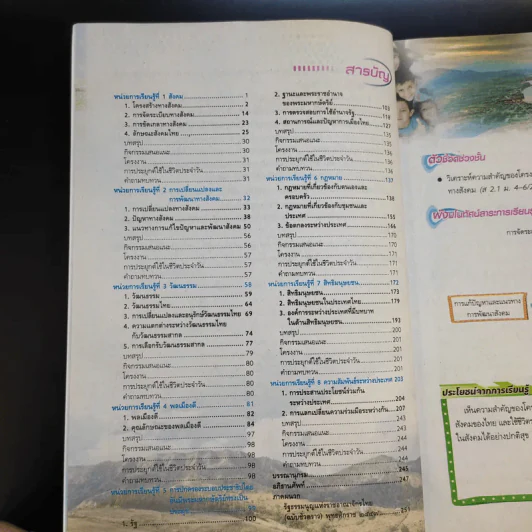 สารบัญ
หน่วยการเรียนรู้ที่ 1 สังคม 1
1. โครงสร้างทางสังคม 2
2. การจัดระเบียบทางสังคม 14
3. การขัดเกลาทางสังคม 23
4. ลักษณะสังคมไทย 25
บทสรุป 30
กิจกรรมเสนอแนะ 30
โครงงาน 31
การประยุกต์ใช้ในชีวิตประจำวัน 31
คำถามทบทวน 31
หน่วยการเรียนรู้ที่ 2 การเปลี่ยนแปลงและ
การพัฒนาทางสังคม 32
1. การเปลี่ยนแปลงทางสังคม 33
2. ปัญหาทางสังคม 38
3. แนวทางการแก้ไขปัญหาและพัฒนาสังคม 50
บทสรุป 56
กิจกรรมเสนอแนะ 56
โครงงาน 57
การประยุกต์ใช้ในชีวิตประจำวัน 57
คำถามทบทวน 57
หน่วยการเรียนรู้ที่ 3 วัฒนธรรม 58
1. วัฒนธรรม 59
2. วัฒนธรรมไทย 64
3. การเปลี่ยนแปลงและอนุรักษ์วัฒนธรรมไทย 69
4. ความแตกต่างระหว่างวัฒนธรรมไทย
กับวัฒนธรรมสากล 74
5. การเลือกรับวัฒนธรรมสากล 77
บทสรุป 79
กิจกรรมเสนอแนะ 80
โครงงาน 80
การประยุกต์ใช้ในชีวิตประจำวัน 80
คำถามทบทวน 80
หน่วยการเรียนรู้ที่ 4 พลเมืองดี 81
1. พลเมืองดี 82
2. คุณลักษณะของพลเมืองดี 84
บทสรุป 97
กิจกรรมเสนอแนะ 98
โครงงาน 98
การประยุกต์ใช้ในชีวิตประจำวัน 98
คำถามทบทวน 98
หน่วยการเรียนรู้ที่ 5 การปกครองระบอบประชาธิปไตย
อันมีพระมหากษัตริย์ทรงเป็น
ประมุข
1. รัฐ 100
2. ฐานะและพระราชอำนาจ
ของพระมหากษัตริย์
3. การตรวจสอบการใช้อำนาจรัฐ 118
4. สถานการณ์และปัญหาการเมืองไทย 127
บทสรุป 135
กิจกรรมเสนอแนะ
โครงงาน 136
การประยุกต์ใช้ในชีวิตประจำวัน 136
คำถามทบทวน 136
หน่วยการเรียนรู้ที่ 6 กฎหมาย 137
1. กฎหมายที่เกี่ยวข้องกับตนเองและ
ครอบครัว 138
2. กฎหมายที่เกี่ยวข้องกับชุมชนและ
ประเทศ 155
3. ข้อตกลงระหว่างประเทศ 166
บทสรุป 170
กิจกรรมเสนอแนะ 170
โครงงาน 171
การประยุกต์ใช้ในชีวิตประจำวัน 171
คำถามทบทวน 171
หน่วยการเรียนรู้ที่ 7 สิทธิมนุษยชน 172
1. สิทธิมนุษยชน 173
2. สิทธิมนุษยชนในประเทศไทย 179
3. องค์การระหว่างประเทศที่มีบทบาท
ในด้านสิทธิมนุษยชน 193
บทสรุป 200
กิจกรรมเสนอแนะ 201
โครงงาน 201
การประยุกต์ใช้ในชีวิตประจำวัน 201
คำถามทบทวน 202
หน่วยการเรียนรู้ที่ 8 ความสัมพันธ์ระหว่างประเทศ 203
1. การประสานประโยชน์ร่วมกัน
ระหว่างประเทศ 204
2. การแลกเปลี่ยนความร่วมมือระหว่างกัน 207
บทสรุป 243
กิจกรรมเสนอแนะ 244
โครงงาน 244
การประยุกต์ใช้ในชีวิตประจำวัน 244
คำถามทบทวน 244
บรรณานุกรม 245
อภิธานศัพท์ 247
ภาคผนวก
รัฐธรรมนูญแห่งราชอาณาจักรไทย
(ฉบับชั่วคราว) พุทธศักราช ๒๕๕๗ 251
ตัวชี้วัดช่วงชั้น
วิเคราะห์ความสำคัญของโครง
ทางสังคม (ส 2.1 ม. 4–6/2
ผังมโนทัศน์สาระการเรียนรู้
การจัดระ
การแก้ปัญหาและแนวทาง
การพัฒนาสังคม
ประโยชน์จากการเรียนรู้
เห็นความสำคัญของโคร
สังคมของไทย และใช้ชีวิต
ในสังคมได้อย่างปกติสุข